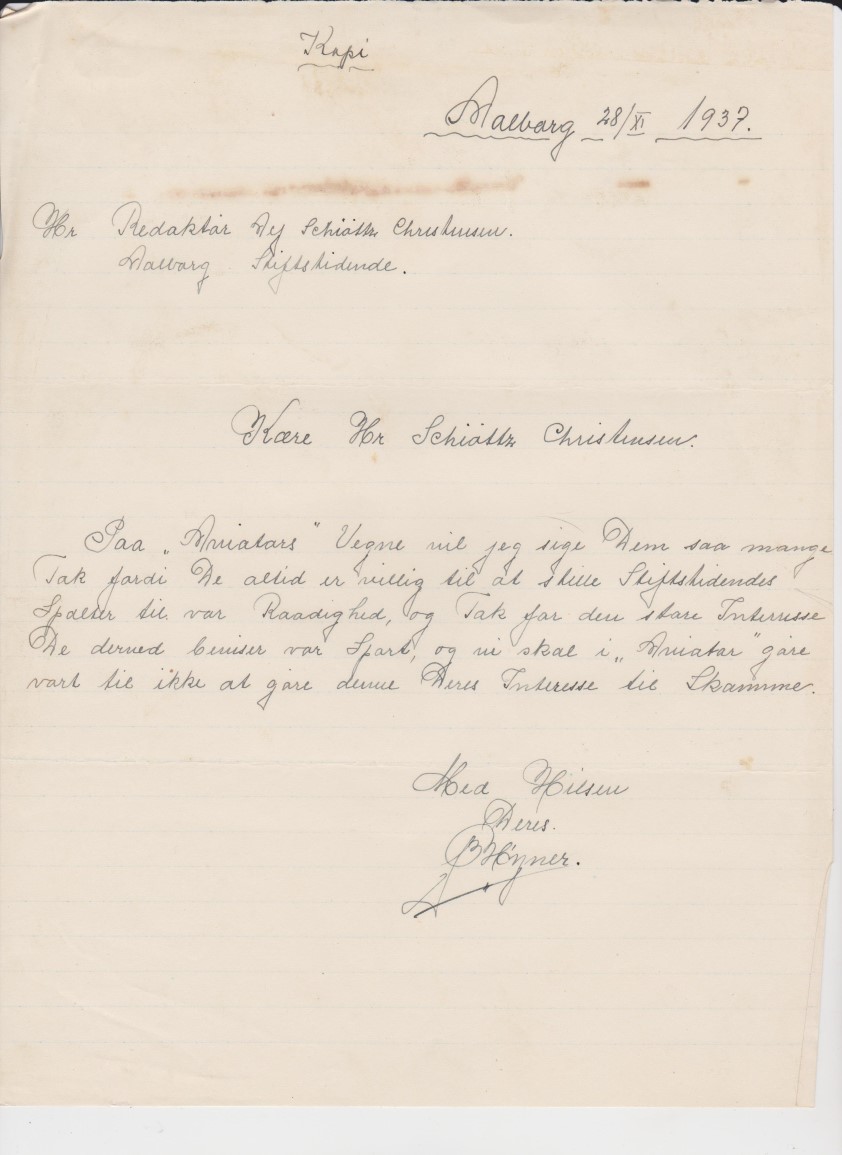 Kopi
Aalborg 28/XI 1937.
Hr Redaktør Schiøttz Christensen.
Aalborg Stiftstidende.
Kære Hr Schiøttz Christensen.
Paa „Aviators" Vegne vil jeg sige Dem saa mange
Tak fordi De altid er villig til at stille Stiftstidendes
Spalter til vor Raadighed, og Tak for den store Interesse
De derved beviser vor Sport, og vi skal i „Aviator" gøre
vort til ikke at gøre denne Deres Interesse til Skamme.
Med Hilsen
Deres.